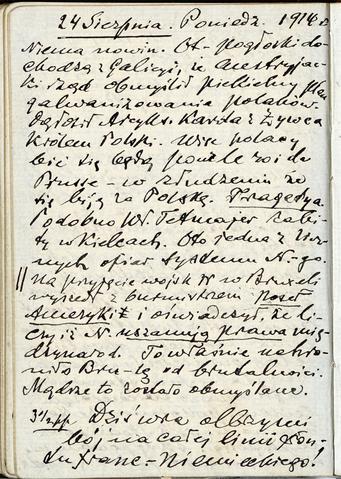 24 Sierpnia. Poniedz. 1914 r.
Niema nowin. Ot - pogłoski do-
chodzą z Galicyi, że austryjac-
ki rząd obmyślił piekielny plan
galwanizowania polaków.
Ogłosił Arcyks. Karola z Żywca
królem Polski. Więc polacy
bić się będą po
Prusse - w złudzeniu że
się biją za Polskę. Tragedya
Podobno Wł. Tetmajer zabi-
ty w Kielcach. Oto jedna z licz-
nych ofiar systemu N-go.
Na przyjęcie wojsk N w Brukseli
wyszedł z burmistrzem poseł
Ameryki i oświadczył, że li-
czy iż N. uszanują prawa mię-
dzynarod. To właśnie uchro-
niło Bru-lę od brutalności.
Mądrze to zostało obmyślane.
3½ pp Dziś wra olbrzymi
bój na całej linii fron-
tu franc - Niemieckiego!